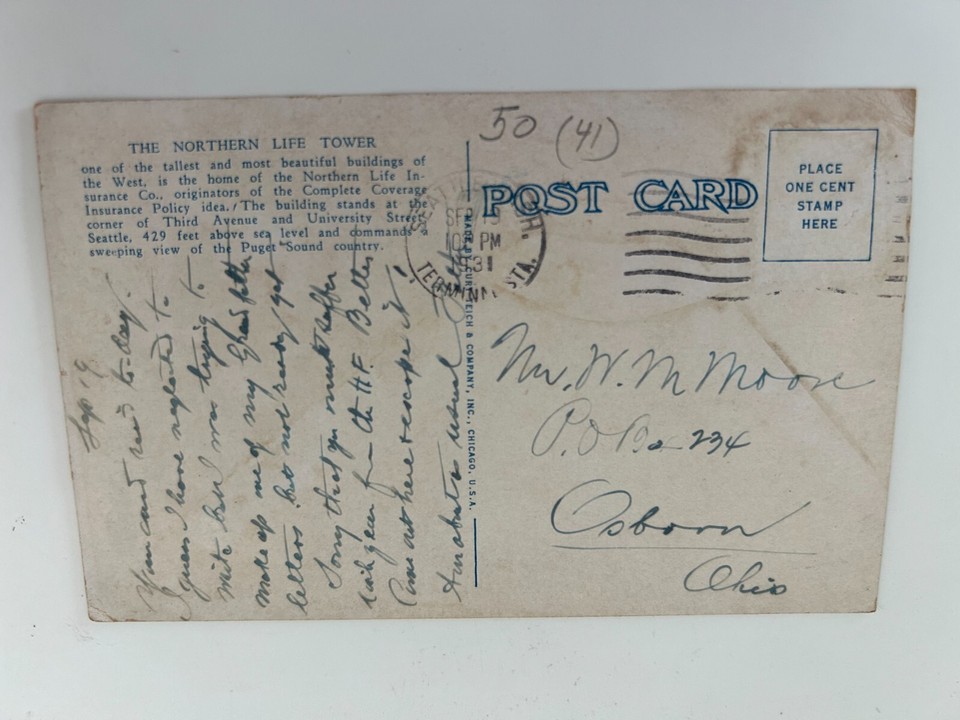 THE NORTHERN LIFE TOWER
one of the tallest and most beautiful buildings of
the West, is the home of the Northern Life In-
surance Co., originators of the Complete Coverage
Insurance Policy idea. The building stands at the
corner of Third Avenue and University Street,
Seattle, 429 feet above sea level and commands a
sweeping view of the Puget Sound country.
50 (41)
POST CARD
PLACE
ONE CENT
STAMP
HERE
SEATTLE
SEP
PM
1931
TERMINAL STA.
Sep 19
Your card rec'd to-day.
I guess I have neglected to
write but I was trying to
make up one of my Grandfather
letters but not ready yet
Sorry that you must suffer
from the H.F. Better
Come out here & escape it!
Am about as usual
C. & COMPANY, INC., CHICAGO, U.S.A.
Mr. W. M Moore
P.O Box 234
Osborn
Ohio